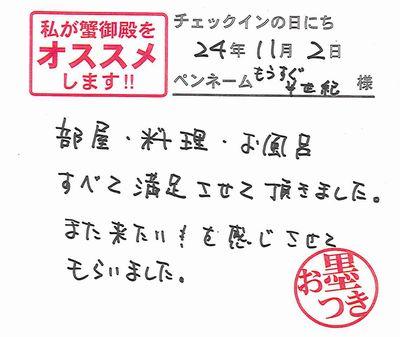 私が蟹御殿を
オススメ
します!!
チェックインの日にち
24年11月2日
ペンネーム もうすぐ半世紀 様
部屋・料理・お風呂
すべて満足させて頂きました。
また来たい!を感じさせて
もらいました。
お墨つき